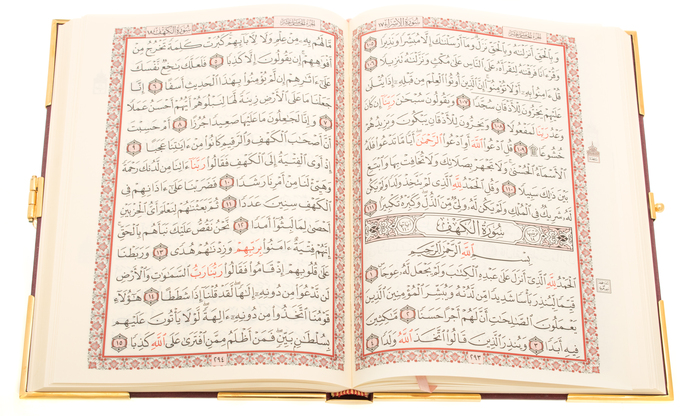 سُورَةُ الإِسْرَاءِ ١٧
وَبِٱلْحَقِّ أَنزَلْنَٰهُ وَبِٱلْحَقِّ نَزَلَ وَمَآ أَرْسَلْنَٰكَ إِلَّا مُبَشِّرًا وَنَذِيرًا ١٠٥
وَقُرْءَانًا فَرَقْنَٰهُ لِتَقْرَأَهُۥ عَلَى ٱلنَّاسِ عَلَىٰ مُكْثٍ وَنَزَّلْنَٰهُ تَنزِيلًا ١٠٦
قُلْ ءَامِنُوا۟ بِهِۦٓ أَوْ لَا تُؤْمِنُوٓا۟ إِنَّ ٱلَّذِينَ أُوتُوا۟ ٱلْعِلْمَ مِن قَبْلِهِۦٓ إِذَا يُتْلَىٰ
عَلَيْهِمْ يَخِرُّونَ لِلْأَذْقَانِ سُجَّدًا ١٠٧ وَيَقُولُونَ سُبْحَٰنَ رَبِّنَآ إِن كَانَ
وَعْدُ رَبِّنَا لَمَفْعُولًا ١٠٨ وَيَخِرُّونَ لِلْأَذْقَانِ يَبْكُونَ وَيَزِيدُهُمْ
خُشُوعًا ۩ ١٠٩ قُلِ ٱدْعُوا۟ ٱللَّهَ أَوِ ٱدْعُوا۟ ٱلرَّحْمَٰنَ أَيًّا مَّا تَدْعُوا۟ فَلَهُ
ٱلْأَسْمَآءُ ٱلْحُسْنَىٰ وَلَا تَجْهَرْ بِصَلَاتِكَ وَلَا تُخَافِتْ بِهَا وَٱبْتَغِ
بَيْنَ ذَٰلِكَ سَبِيلًا ١١٠ وَقُلِ ٱلْحَمْدُ لِلَّهِ ٱلَّذِى لَمْ يَتَّخِذْ وَلَدًا وَلَمْ يَكُن
لَّهُۥ شَرِيكٌ فِى ٱلْمُلْكِ وَلَمْ يَكُن لَّهُۥ وَلِىٌّ مِّنَ ٱلذُّلِّ وَكَبِّرْهُ تَكْبِيرًۢا ١١١
سُورَةُ الكَهْفِ
بِسْمِ ٱللَّهِ ٱلرَّحْمَٰنِ ٱلرَّحِيمِ
ٱلْحَمْدُ لِلَّهِ ٱلَّذِىٓ أَنزَلَ عَلَىٰ عَبْدِهِ ٱلْكِتَٰبَ وَلَمْ يَجْعَل لَّهُۥ عِوَجَا ١
قَيِّمًا لِّيُنذِرَ بَأْسًا شَدِيدًا مِّن لَّدُنْهُ وَيُبَشِّرَ ٱلْمُؤْمِنِينَ ٱلَّذِينَ
يَعْمَلُونَ ٱلصَّٰلِحَٰتِ أَنَّ لَهُمْ أَجْرًا حَسَنًا ٢ مَّٰكِثِينَ
فِيهِ أَبَدًا ٣ وَيُنذِرَ ٱلَّذِينَ قَالُوا۟ ٱتَّخَذَ ٱللَّهُ وَلَدًا ٤
٢٩٣
سُورَةُ الكَهْفِ ١٨
مَّا لَهُم بِهِۦ مِنْ عِلْمٍ وَلَا لِءَابَآئِهِمْ كَبُرَتْ كَلِمَةً تَخْرُجُ مِنْ
أَفْوَٰهِهِمْ إِن يَقُولُونَ إِلَّا كَذِبًا ٥ فَلَعَلَّكَ بَٰخِعٌ نَّفْسَكَ
عَلَىٰٓ ءَاثَٰرِهِمْ إِن لَّمْ يُؤْمِنُوا۟ بِهَٰذَا ٱلْحَدِيثِ أَسَفًا ٦ إِنَّا
جَعَلْنَا مَا عَلَى ٱلْأَرْضِ زِينَةً لَّهَا لِنَبْلُوَهُمْ أَيُّهُمْ أَحْسَنُ عَمَلًا
٧ وَإِنَّا لَجَٰعِلُونَ مَا عَلَيْهَا صَعِيدًا جُرُزًا ٨ أَمْ حَسِبْتَ
أَنَّ أَصْحَٰبَ ٱلْكَهْفِ وَٱلرَّقِيمِ كَانُوا۟ مِنْ ءَايَٰتِنَا عَجَبًا ٩
إِذْ أَوَى ٱلْفِتْيَةُ إِلَى ٱلْكَهْفِ فَقَالُوا۟ رَبَّنَآ ءَاتِنَا مِن لَّدُنكَ رَحْمَةً
وَهَيِّئْ لَنَا مِنْ أَمْرِنَا رَشَدًا ١٠ فَضَرَبْنَا عَلَىٰٓ ءَاذَانِهِمْ فِى
ٱلْكَهْفِ سِنِينَ عَدَدًا ١١ ثُمَّ بَعَثْنَٰهُمْ لِنَعْلَمَ أَىُّ ٱلْحِزْبَيْنِ
أَحْصَىٰ لِمَا لَبِثُوٓا۟ أَمَدًا ١٢ نَّحْنُ نَقُصُّ عَلَيْكَ نَبَأَهُم بِٱلْحَقِّ
إِنَّهُمْ فِتْيَةٌ ءَامَنُوا۟ بِرَبِّهِمْ وَزِدْنَٰهُمْ هُدًى ١٣ وَرَبَطْنَا
عَلَىٰ قُلُوبِهِمْ إِذْ قَامُوا۟ فَقَالُوا۟ رَبُّنَا رَبُّ ٱلسَّمَٰوَٰتِ وَٱلْأَرْضِ
لَن نَّدْعُوَا۟ مِن دُونِهِۦٓ إِلَٰهًا لَّقَدْ قُلْنَآ إِذًا شَطَطًا ١٤ هَٰٓؤُلَآءِ
قَوْمُنَا ٱتَّخَذُوا۟ مِن دُونِهِۦٓ ءَالِهَةً لَّوْلَا يَأْتُونَ عَلَيْهِم
بِسُلْطَٰنٍۭ بَيِّنٍ فَمَنْ أَظْلَمُ مِمَّنِ ٱفْتَرَىٰ عَلَى ٱللَّهِ كَذِبًا ١٥
٢٩٤